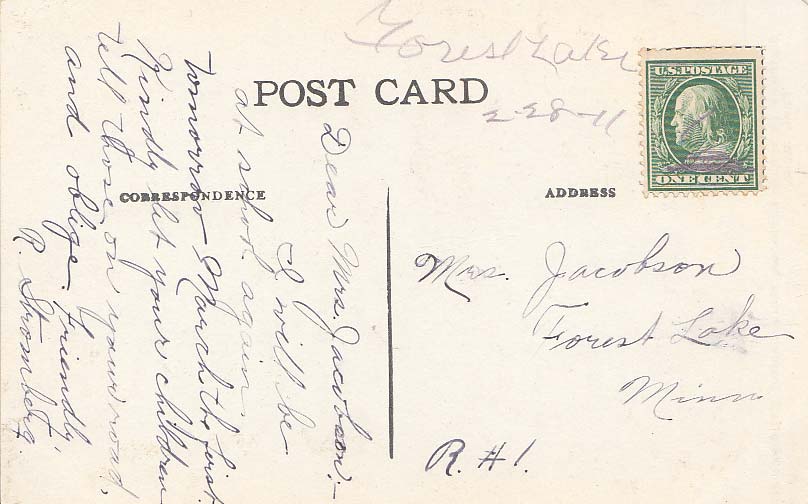 Forest Lake
2-28-11
POST CARD
U.S. POSTAGE
ONE CENT
CORRESPONDENCE
ADDRESS
Dear Mrs. Jacobson:-
I will be
at school again
tomorrow March the first
Kindly let your children
tell those on your road,
and oblige. Friendly,
R. Stromberg.
Mrs. Jacobson
Forest Lake
Minn
R. #1.